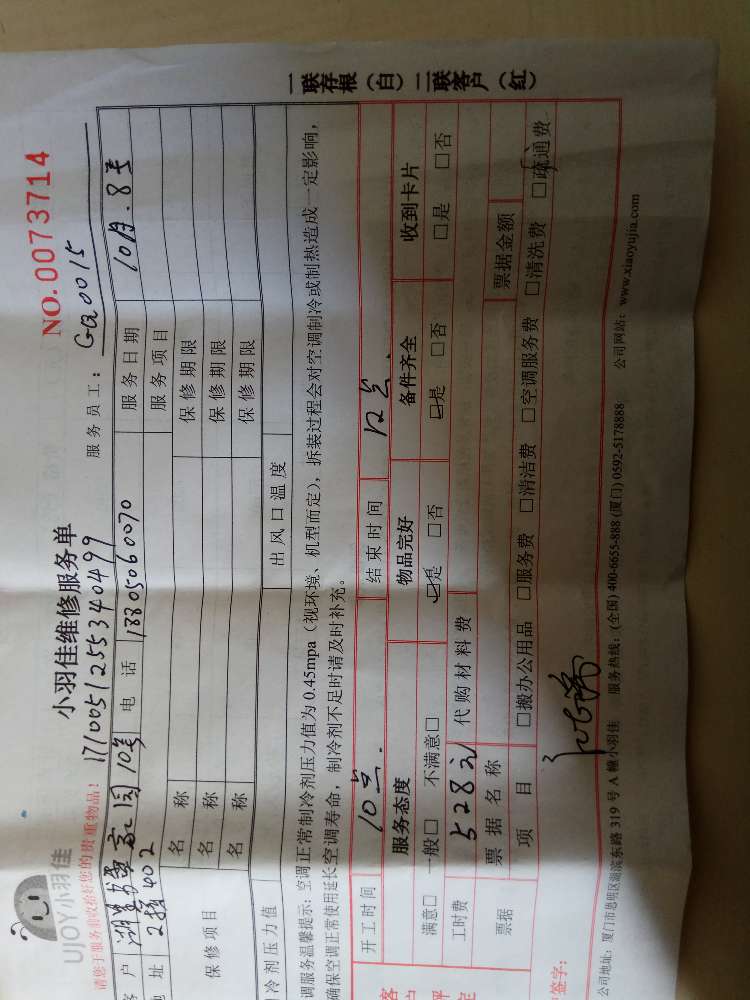 UJOY小羽佳
小羽佳维修服务单
NO.0073714
请您于服务前收拾好您的贵重物品！
1710051255340499
服务员工：Ga0015
户 湖 10号 电话 13805060070 服务日期 10月.8号
址 2梯402
服务项目
保修项目
名称 保修期限
名称 保修期限
名称 保修期限
冷剂压力值 出风口温度
调服务温馨提示：空调正常制冷剂压力值为0.45mpa（视环境、机型而定），拆装过程会对空调制冷或制热造成一定影响，
确保空调正常使用延长空调寿命，制冷剂不足时请及时补充。
开工时间 10点. 结束时间 12点.
服务态度 物品完好 备件齐全 收到卡片
满意□ 一般□ 不满意□ □是 □否 □是 □否 □是 □否
工时费 528元 代购材料费
票据 票据名称 票据金额
项目 □搬办公用品 □服务费 □清洁费 □空调服务费 □清洗费 □疏通费
签字：
公司地址：厦门市思明区湖滨东路319号A幢小羽佳 服务热线：(全国)400-6655-888 (厦门)0592-5178888 公司网站：www.xiaoyujia.com
一联存根（白）二联客户（红）